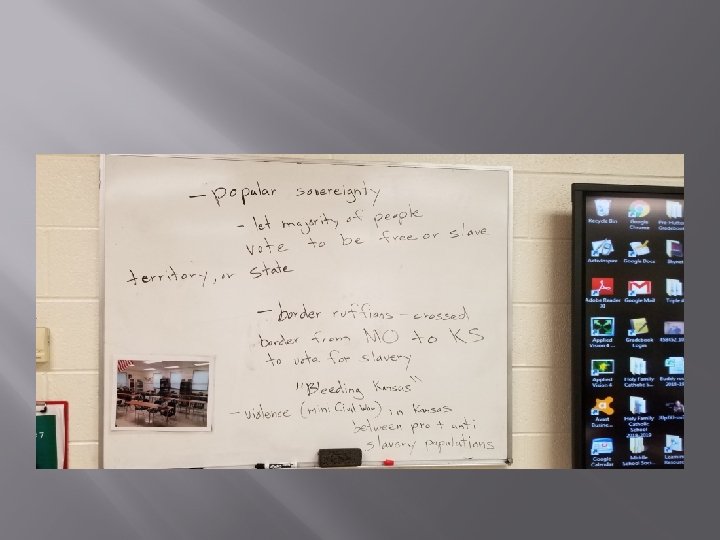 - popular sovereignty
- let majority of people
vote to be free or slave
territory, or state
- border ruffians - crossed
border from MO to KS
to vote for slavery
"Bleeding Kansas"
- violence (mini Civil War) in Kansas
between pro + anti
slavery populations
Recycle Bin
Google Chrome
ActivInspire
Google Docs
Adobe Reader
Google Mail
Applied Vision 4 ...
Gradebook Logos
Applied Vision 4
Holy Family Catholic S...
Avast Busine...
Holy Family Catholic School 2018-2019
Google Calendar
Middle School Soci...